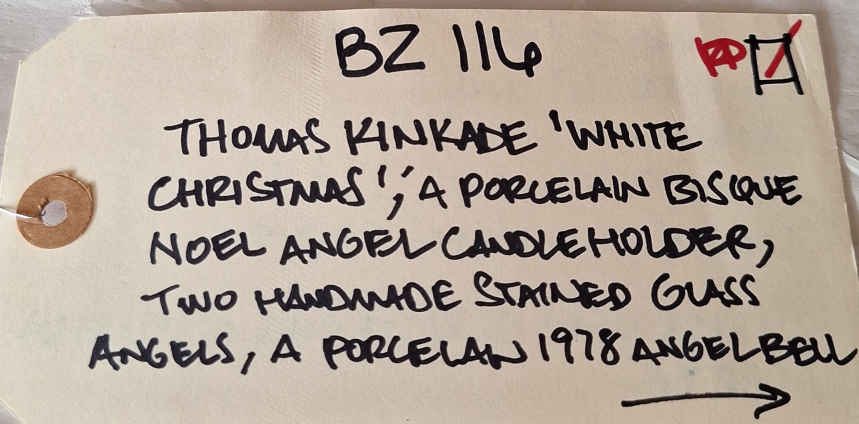 BZ 116
RP
THOMAS KINKADE 'WHITE
CHRISTMAS', A PORCELAIN BISQUE
NOEL ANGEL CANDLEHOLDER,
TWO HANDMADE STAINED GLASS
ANGELS, A PORCELAIN 1978 ANGEL BELL